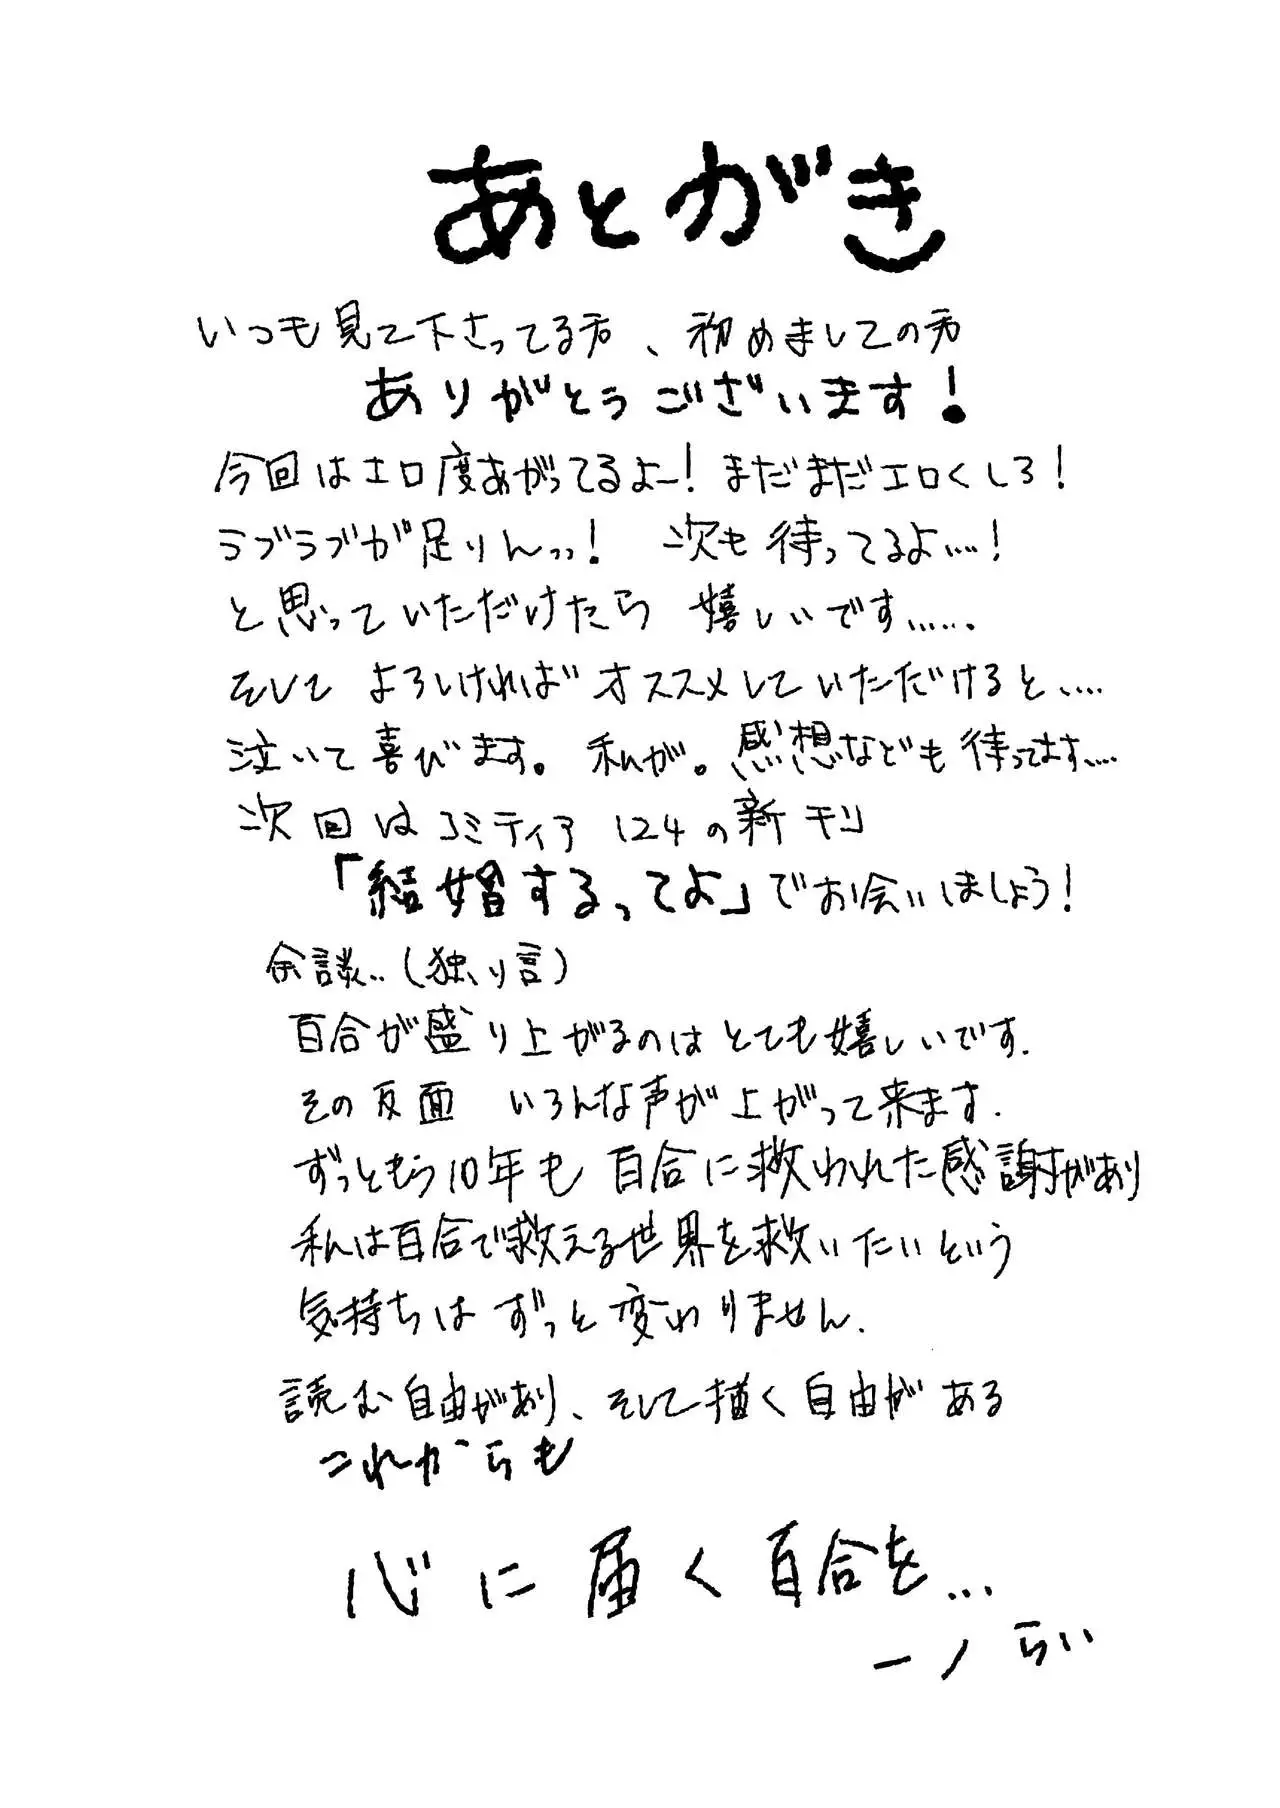 あとがき
いつも見て下さってる方、初めましての方
ありがとうございます!
今回はエロ度あがってるよー!まだまだエロくしろ!
ラブラブが足りんっっ! 次も待ってるよ….!
と思っていただけたら 嬉しいです……
そしてよろしければオススメしていただけると….
泣いて喜びます。私が。感想なども待ってます….
次回はコミティア124の新刊
「結婚するってよ」でお会いしましょう!
余談..(独り言)
百合が盛り上がるのはとても嬉しいです.
その反面 いろんな声が上がって来ます.
ずっともう10年も 百合に救われた感謝があり
私は百合で救える世界を救いたいという
気持ちは ずっと変わりません.
読む自由があり、そして描く自由がある
これからも
心に届く百合を...
一ノ らい